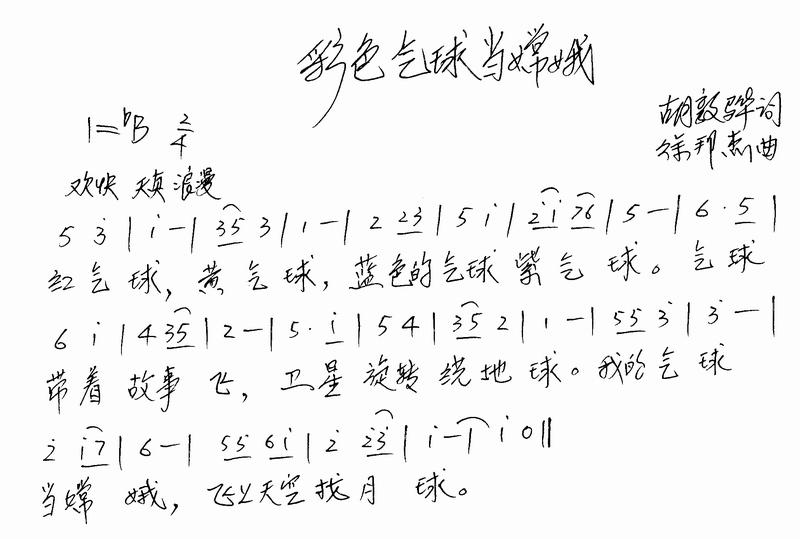 彩色气球当嫦娥
胡敦骅词
徐邦杰曲
1=♭B 2/4
欢快 天真 浪漫
5 3̇ | i - | 35 3 | 1 - | 2 23 | 5 i | 2̇i 76 | 5 - | 6 · 5 |
红气球,黄气球,蓝色的气球紫气球。气球
6 i | 4 35 | 2 - | 5 · i | 5 4 | 35 2 | 1 - | 55 3̇ | 3̇ - |
带着故事飞,卫星旋转绕地球。我的气球
2̇ i7 | 6 - | 55 6i | 2̇ 2̇3̇ | i - | i 0 ||
当嫦娥,飞上天空找月球。